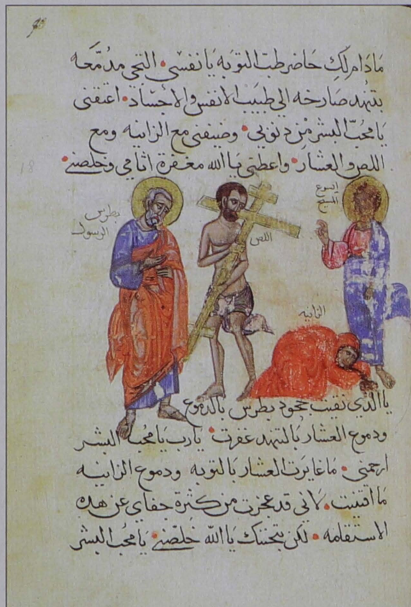 مادام لك حاضر طب التوبه يا نفسي التجي مدمعه
بتنهد صارخه الي طبيب الانفس والاجساد اعتقني
يا محب البشر من ذنوبي وصنفني مع الزانيه ومع
اللص والعشار واعطني يا الله مغفرة اثامي وخلصني
ايسوع
المسيح
اللص
بطرس
الرسول
الزانيه
يا الذي نقيت جحود بطرس بالدموع
ودموع العشار بالتنهد غفرت يا رب يا محب البشر
ارحمني ما غايرت العشار بالتوبه ودموع الزانيه
ما اقتنيت لاني قد عجزت من كثرة جفاي عن هده
الاستقامه لكن بتحننك يا الله خلصني يا محب البشر